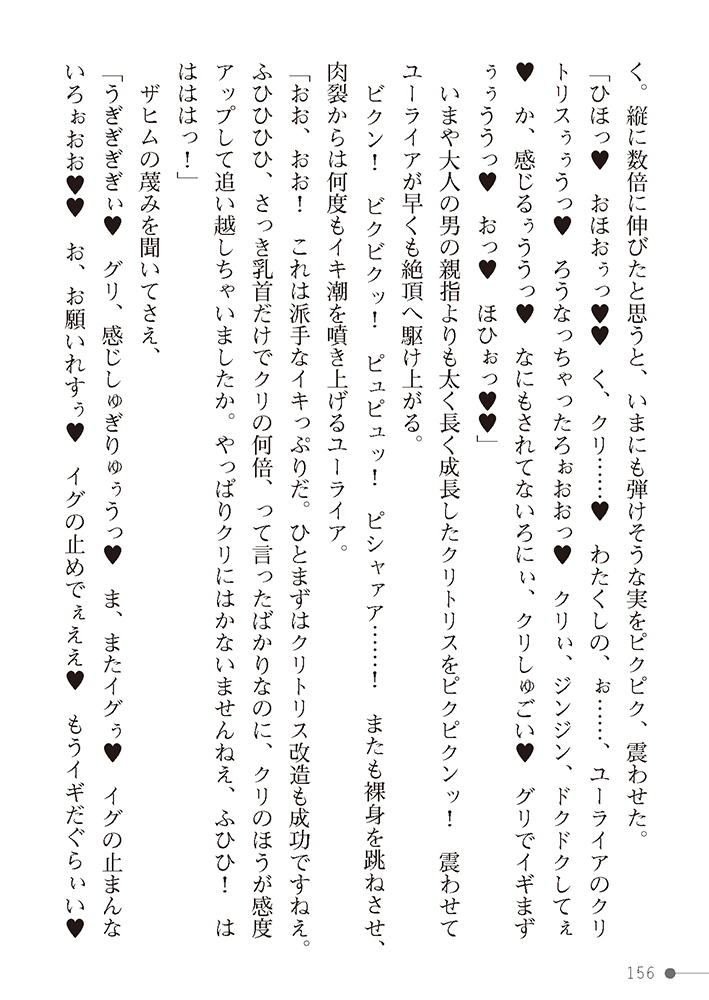 く。縦に数倍に伸びたと思うと、いまにも弾けそうな実をピクピク、震わせた。
「ひほっ♥　おほおぅっ♥♥　く、クリ……♥　わたくしの、ぉ……、ユーライアのクリ
トリスぅぅうっ♥　ろうなっちゃったろぉおおっ♥　クリぃ、ジンジン、ドクドクしてぇ
♥　か、感じるぅううっ♥　なにもされてないろにぃ、クリしゅごい♥　グリでイギまず
ぅぅううっ♥　おっ♥　ほひぉっ♥♥」
　いまや大人の男の親指よりも太く長く成長したクリトリスをピクピクンッ！　震わせて
ユーライアが早くも絶頂へ駆け上がる。
　ビクン！　ビクビクッ！　ピュピュッ！　ピシャァア……！　またも裸身を跳ねさせ、
肉裂からは何度もイキ潮を噴き上げるユーライア。
「おお、おお！　これは派手なイキっぷりだ。ひとまずはクリトリス改造も成功ですねえ。
ふひひひひ、さっき乳首だけでクリの何倍、って言ったばかりなのに、クリのほうが感度
アップして追い越しちゃいましたか。やっぱりクリにはかないませんねえ、ふひひ！　は
ははは っ！」
　ザヒムの蔑みを聞いてさえ、
「うぎぎぎぎぃ♥　グリ、感じしゅぎりゅぅうっ♥　ま、またイグぅ♥　イグの止まんな
いろぉおお♥♥　お、お願いれすぅ♥　イグの止めでぇええ♥　もうイギだぐらぃい♥
156